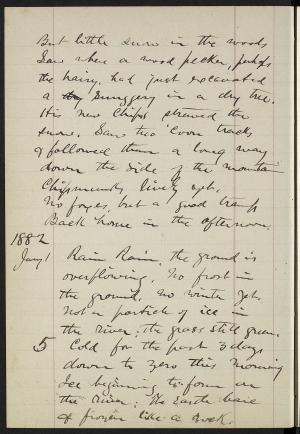 But little snow in the woods
Saw where a wood pecker, perhaps
the hairy, had just excavated
a snuggery in a dry tree.
His new chips strewed the
snow. Saw two 'Coon tracks
& followed them a long way
down the side of the mountain
Chipmunks lively yet.
No foxes, but a good tramp
Back home in the afternoon.
1882
Jany 1 Rain Rain, the ground is
overflowing. No frost in
the ground, no winter yet.
Not a particle of ice in
the river; the grass still green.
5 Cold for the past 3 days
down to zero this morning
Ice beginning to form on
the river; the earth bare
& frozen like a rock.